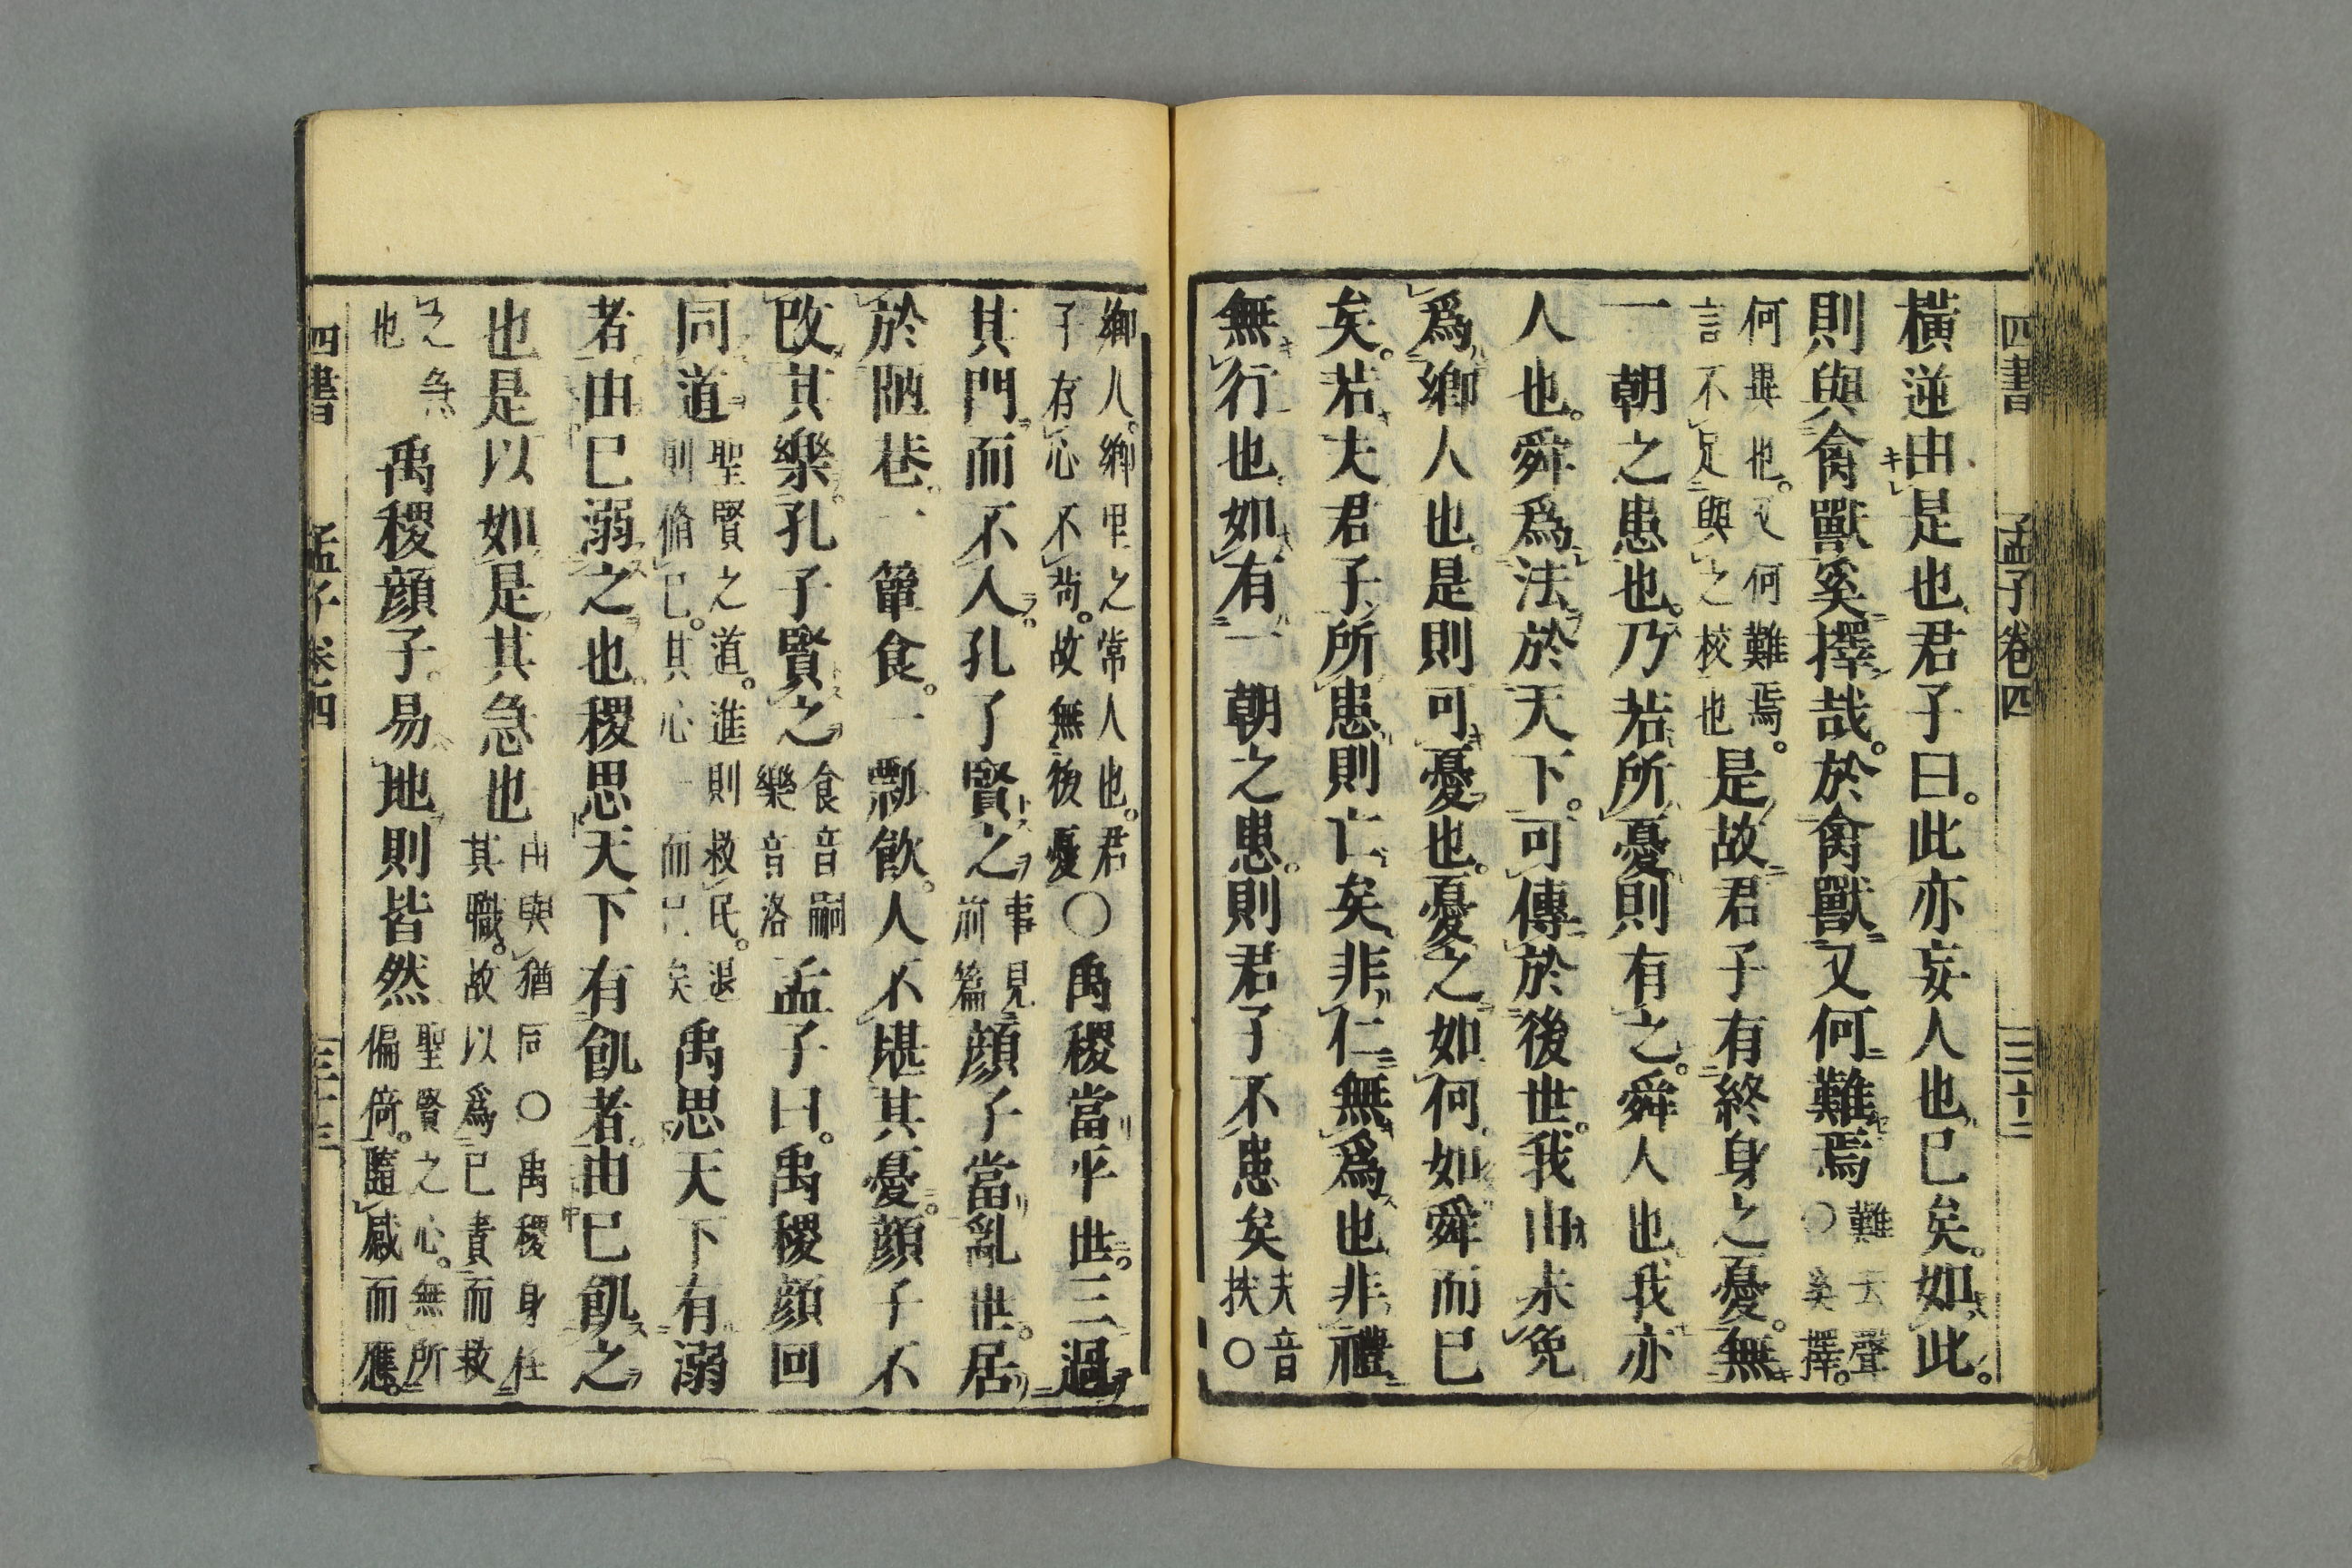 四書　孟子卷四　三十二
橫逆由是也君子曰。此亦妄人也已矣。如此。
則與禽獸奚擇哉。於禽獸又何難焉難去聲○奚擇。
何異也。又何難焉。言不足與之校也是故君子有終身之憂。無
一朝之患也。乃若所憂則有之。舜人也我亦
人也。舜爲法於天下。可傳於後世。我由未免
爲鄉人也。是則可憂也。憂之如何。如舜而已
矣。若夫君子所患則亡矣非仁無爲也非禮
無行也如有一朝之患。則君子不患矣夫音扶○
鄉人。鄉里之常人也。君子存心不苟。故無後憂○禹稷當平世。三過
其門。而不入。孔子賢之事見前篇顔子當亂世。居
於陋巷。一簞食。一瓢飮。人不堪其憂。顔子不
改其樂。孔子賢之食音嗣樂音洛孟子曰。禹稷顔回
同道聖賢之道。進則救民。退則脩已。其心一而已矣禹思天下有溺
者。由已溺之也。稷思天下有飢者。由已飢之
也是以如是其急也由與猶同○禹稷身任其職。故以爲已責而救
之急也禹稷顔子。易地則皆然聖賢之心。無所偏倚。隨感而應。
四書　孟子卷四　三十三